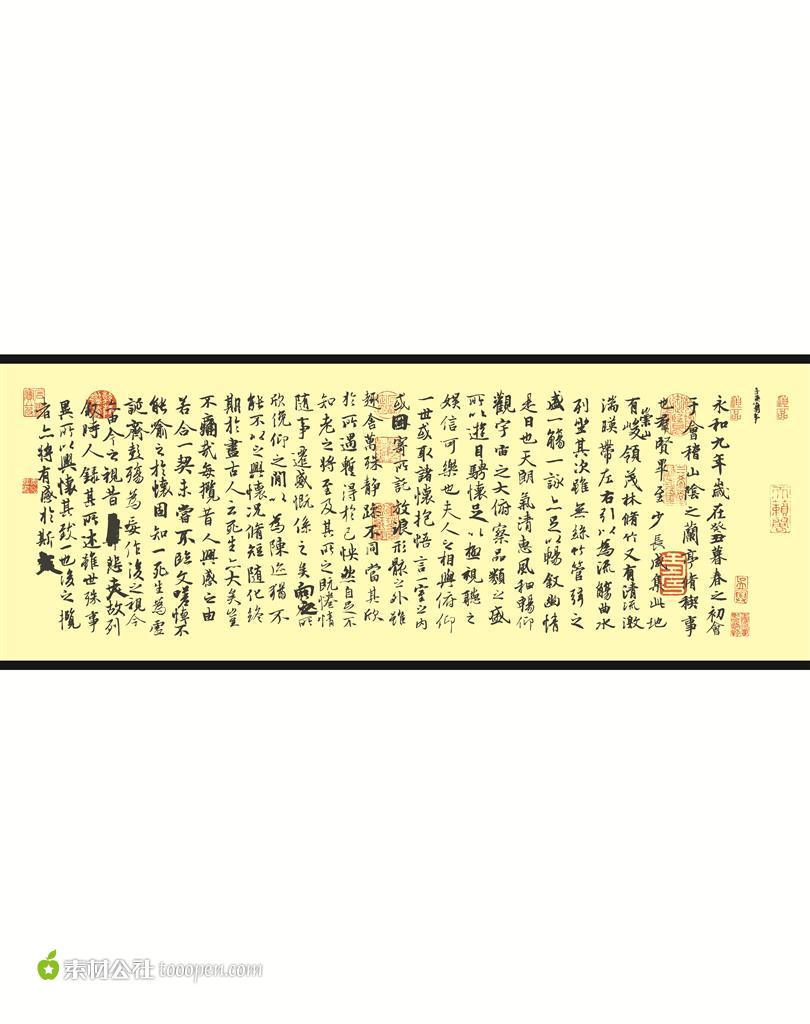 永和九年歲在癸丑暮春之初會
于會稽山陰之蘭亭脩稧事
也羣賢畢至少長咸集此地
有崇山峻領茂林脩竹又有清流激
湍暎帶左右引以為流觴曲水
列坐其次雖無絲竹管弦之
盛一觴一詠亦足以暢敘幽情
是日也天朗氣清惠風和暢仰
觀宇宙之大俯察品類之盛
所以遊目騁懷足以極視聽之
娛信可樂也夫人之相與俯仰
一世或取諸懷抱悟言一室之內
或因寄所託放浪形骸之外雖
趣舍萬殊靜躁不同當其欣
於所遇暫得於己怏然自足不
知老之將至及其所之既惓情
隨事遷感慨係之矣向之所
欣俛仰之閒以為陳迹猶不
能不以之興懷況脩短隨化終
期於盡古人云死生亦大矣豈
不痛哉每攬昔人興感之由
若合一契未嘗不臨文嗟悼不
能喻之於懷固知一死生為虛
誕齊彭殤為妄作後之視今
亦由今之視昔悲夫故列
敘時人錄其所述雖世殊事
異所以興懷其致一也後之攬
者亦將有感於斯文
素材公社 tooopen.com